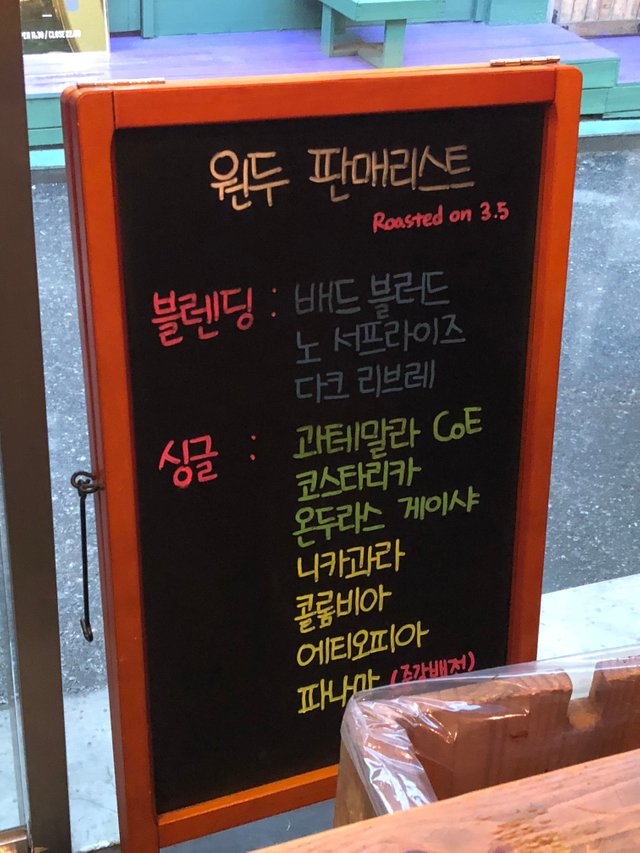 / CLOSE 22.00
원두 판매리스트
Roasted on 3.5
블렌딩 : 배드 블러드
노 서프라이즈
다크 리브레
싱글 : 과테말라 CoE
코스타리카
온두라스 게이샤
니카과라
콜롬비아
에티오피아
파나마 (중강배전)